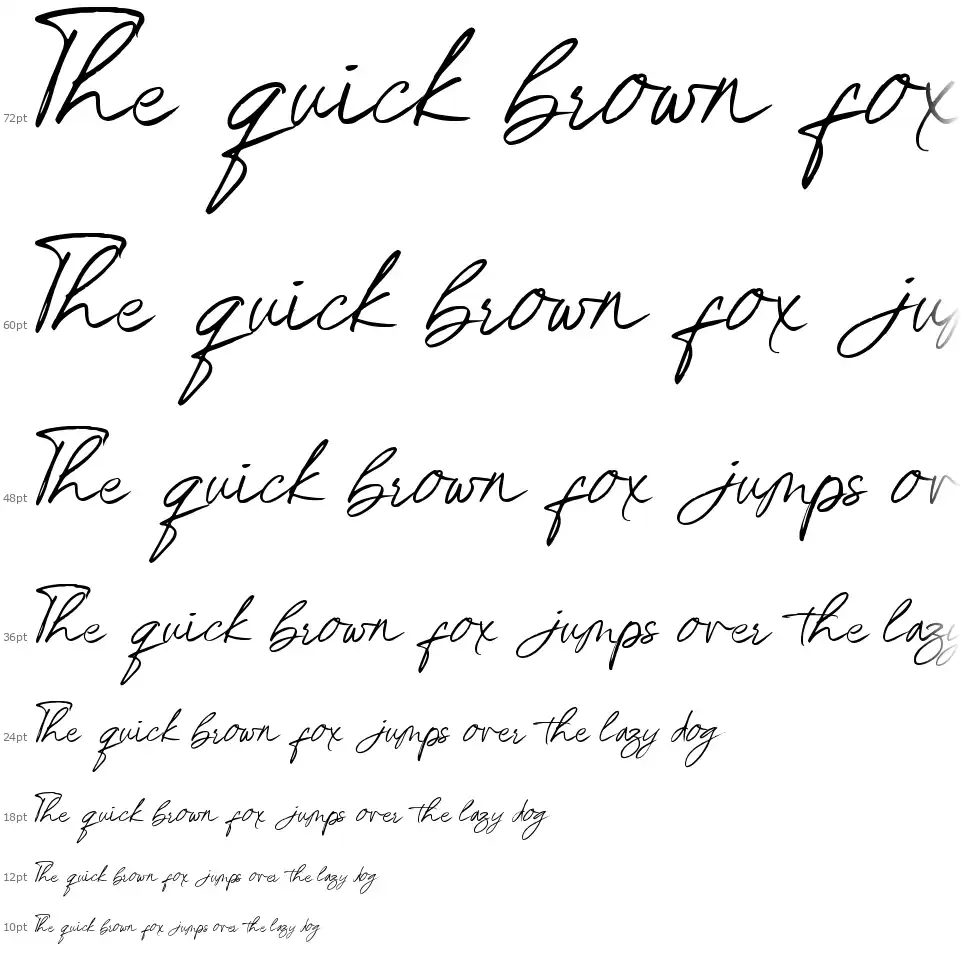 72pt The quick brown fox
60pt The quick brown fox ju
48pt The quick brown fox jumps ov
36pt The quick brown fox jumps over the lazy
24pt The quick brown fox jumps over the lazy dog
18pt The quick brown fox jumps over the lazy dog
12pt The quick brown fox jumps over the lazy dog
10pt The quick brown fox jumps over the lazy dog